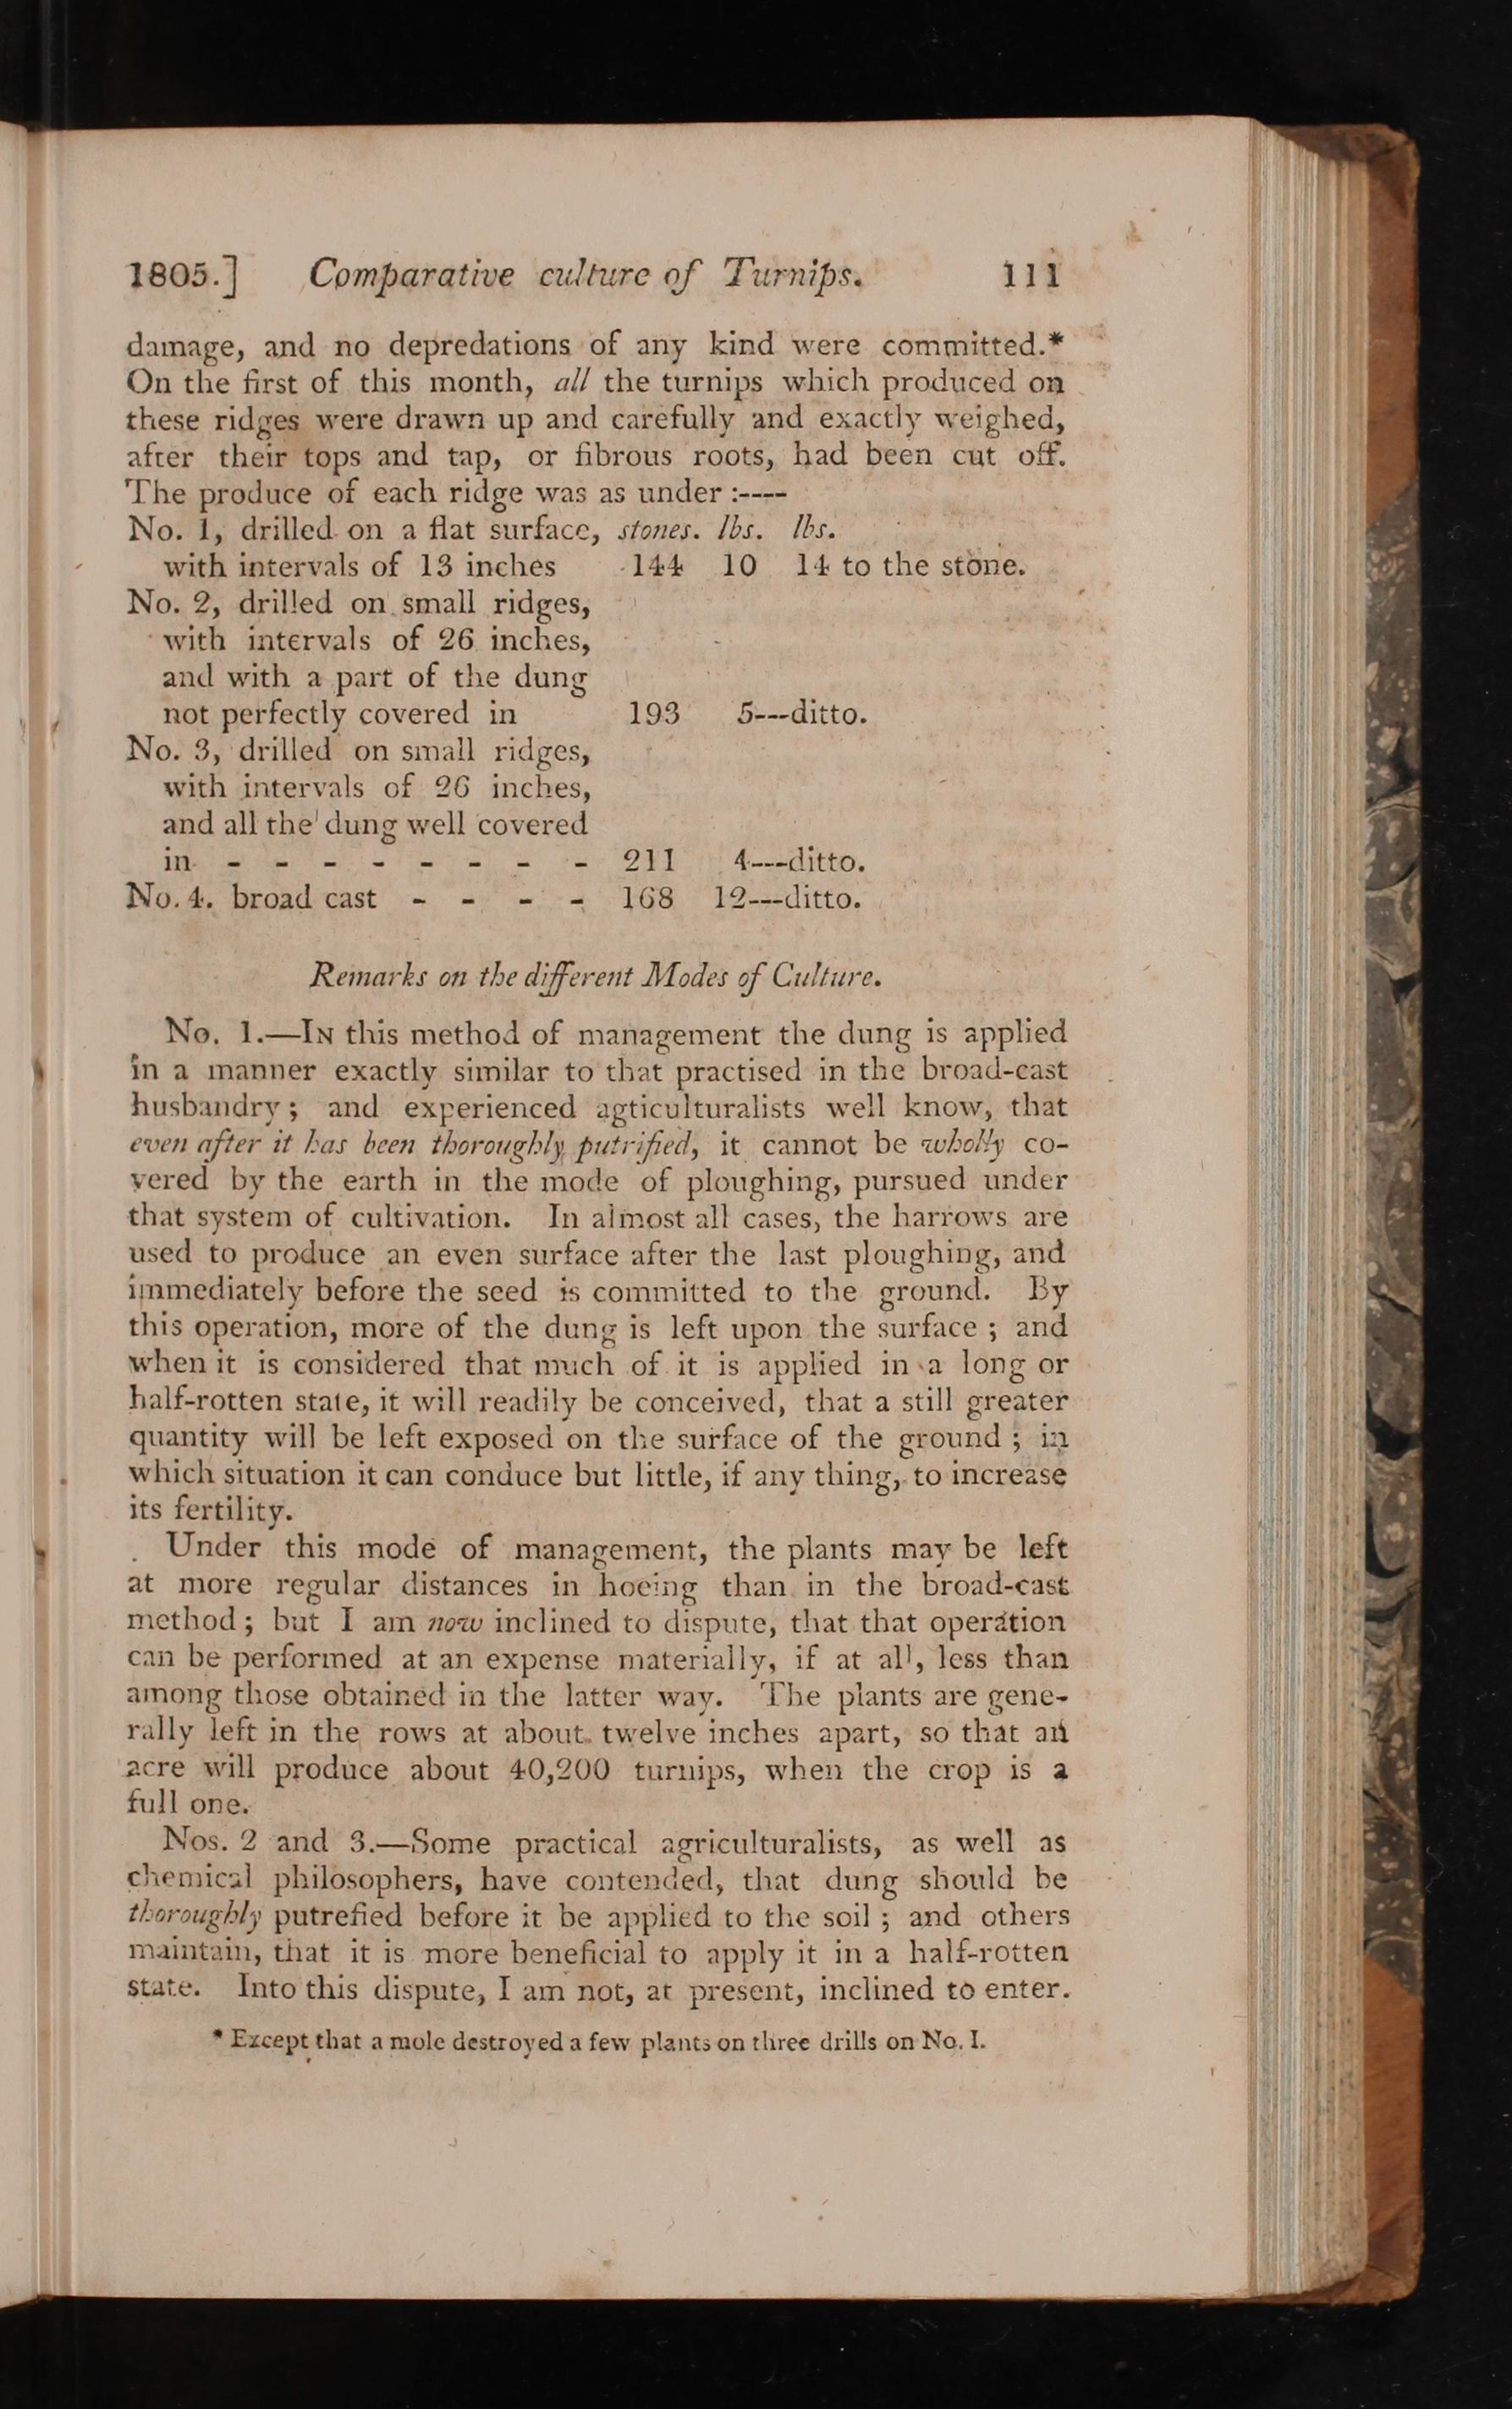 1805.] Comparative culture of Turnips. 111
damage, and no depredations of any kind were committed.*
On the first of this month, all the turnips which produced on
these ridges were drawn up and carefully and exactly weighed,
after their tops and tap, or fibrous roots, had been cut off.
The produce of each ridge was as under :----
No. 1, drilled on a flat surface, stones. lbs. lbs.
with intervals of 13 inches 144 10 14 to the stone.
No. 2, drilled on small ridges,
with intervals of 26 inches,
and with a part of the dung
not perfectly covered in 193 5---ditto.
No. 3, drilled on small ridges,
with intervals of 26 inches,
and all the dung well covered
in - - - - - - - - 211 4---ditto.
No. 4. broad cast - - - - 168 12---ditto.
Remarks on the different Modes of Culture.
No. 1.—In this method of management the dung is applied
in a manner exactly similar to that practised in the broad-cast
husbandry; and experienced agticulturalists well know, that
even after it has been thoroughly putrified, it cannot be wholly co-
vered by the earth in the mode of ploughing, pursued under
that system of cultivation. In almost all cases, the harrows are
used to produce an even surface after the last ploughing, and
immediately before the seed is committed to the ground. By
this operation, more of the dung is left upon the surface; and
when it is considered that much of it is applied in a long or
half-rotten state, it will readily be conceived, that a still greater
quantity will be left exposed on the surface of the ground; in
which situation it can conduce but little, if any thing, to increase
its fertility.
Under this mode of management, the plants may be left
at more regular distances in hoeing than in the broad-cast
method; but I am now inclined to dispute, that that operation
can be performed at an expense materially, if at all, less than
among those obtained in the latter way. The plants are gene-
rally left in the rows at about twelve inches apart, so that an
acre will produce about 40,200 turnips, when the crop is a
full one.
Nos. 2 and 3.—Some practical agriculturalists, as well as
chemical philosophers, have contended, that dung should be
thoroughly putrefied before it be applied to the soil; and others
maintain, that it is more beneficial to apply it in a half-rotten
state. Into this dispute, I am not, at present, inclined to enter.
* Except that a mole destroyed a few plants on three drills on No. I.